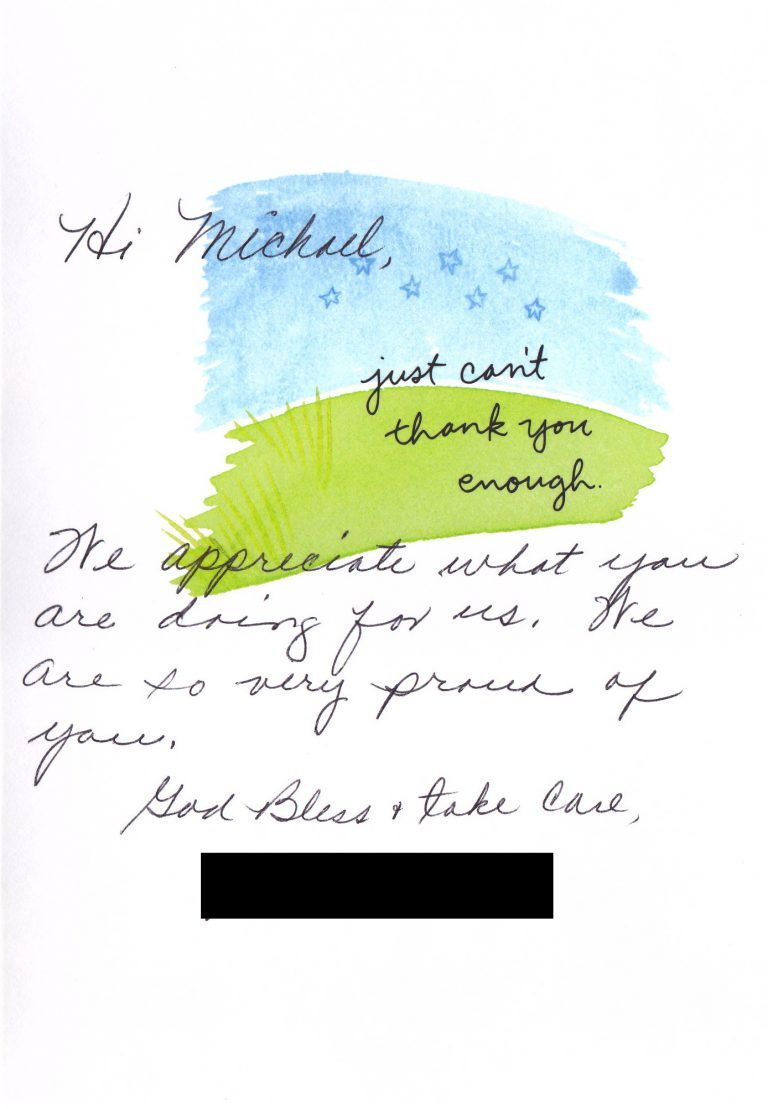 Hi Michael,
just can't
thank you
enough.
We appreciate what you
are doing for us. We
are so very proud of
you.
God Bless + take care,